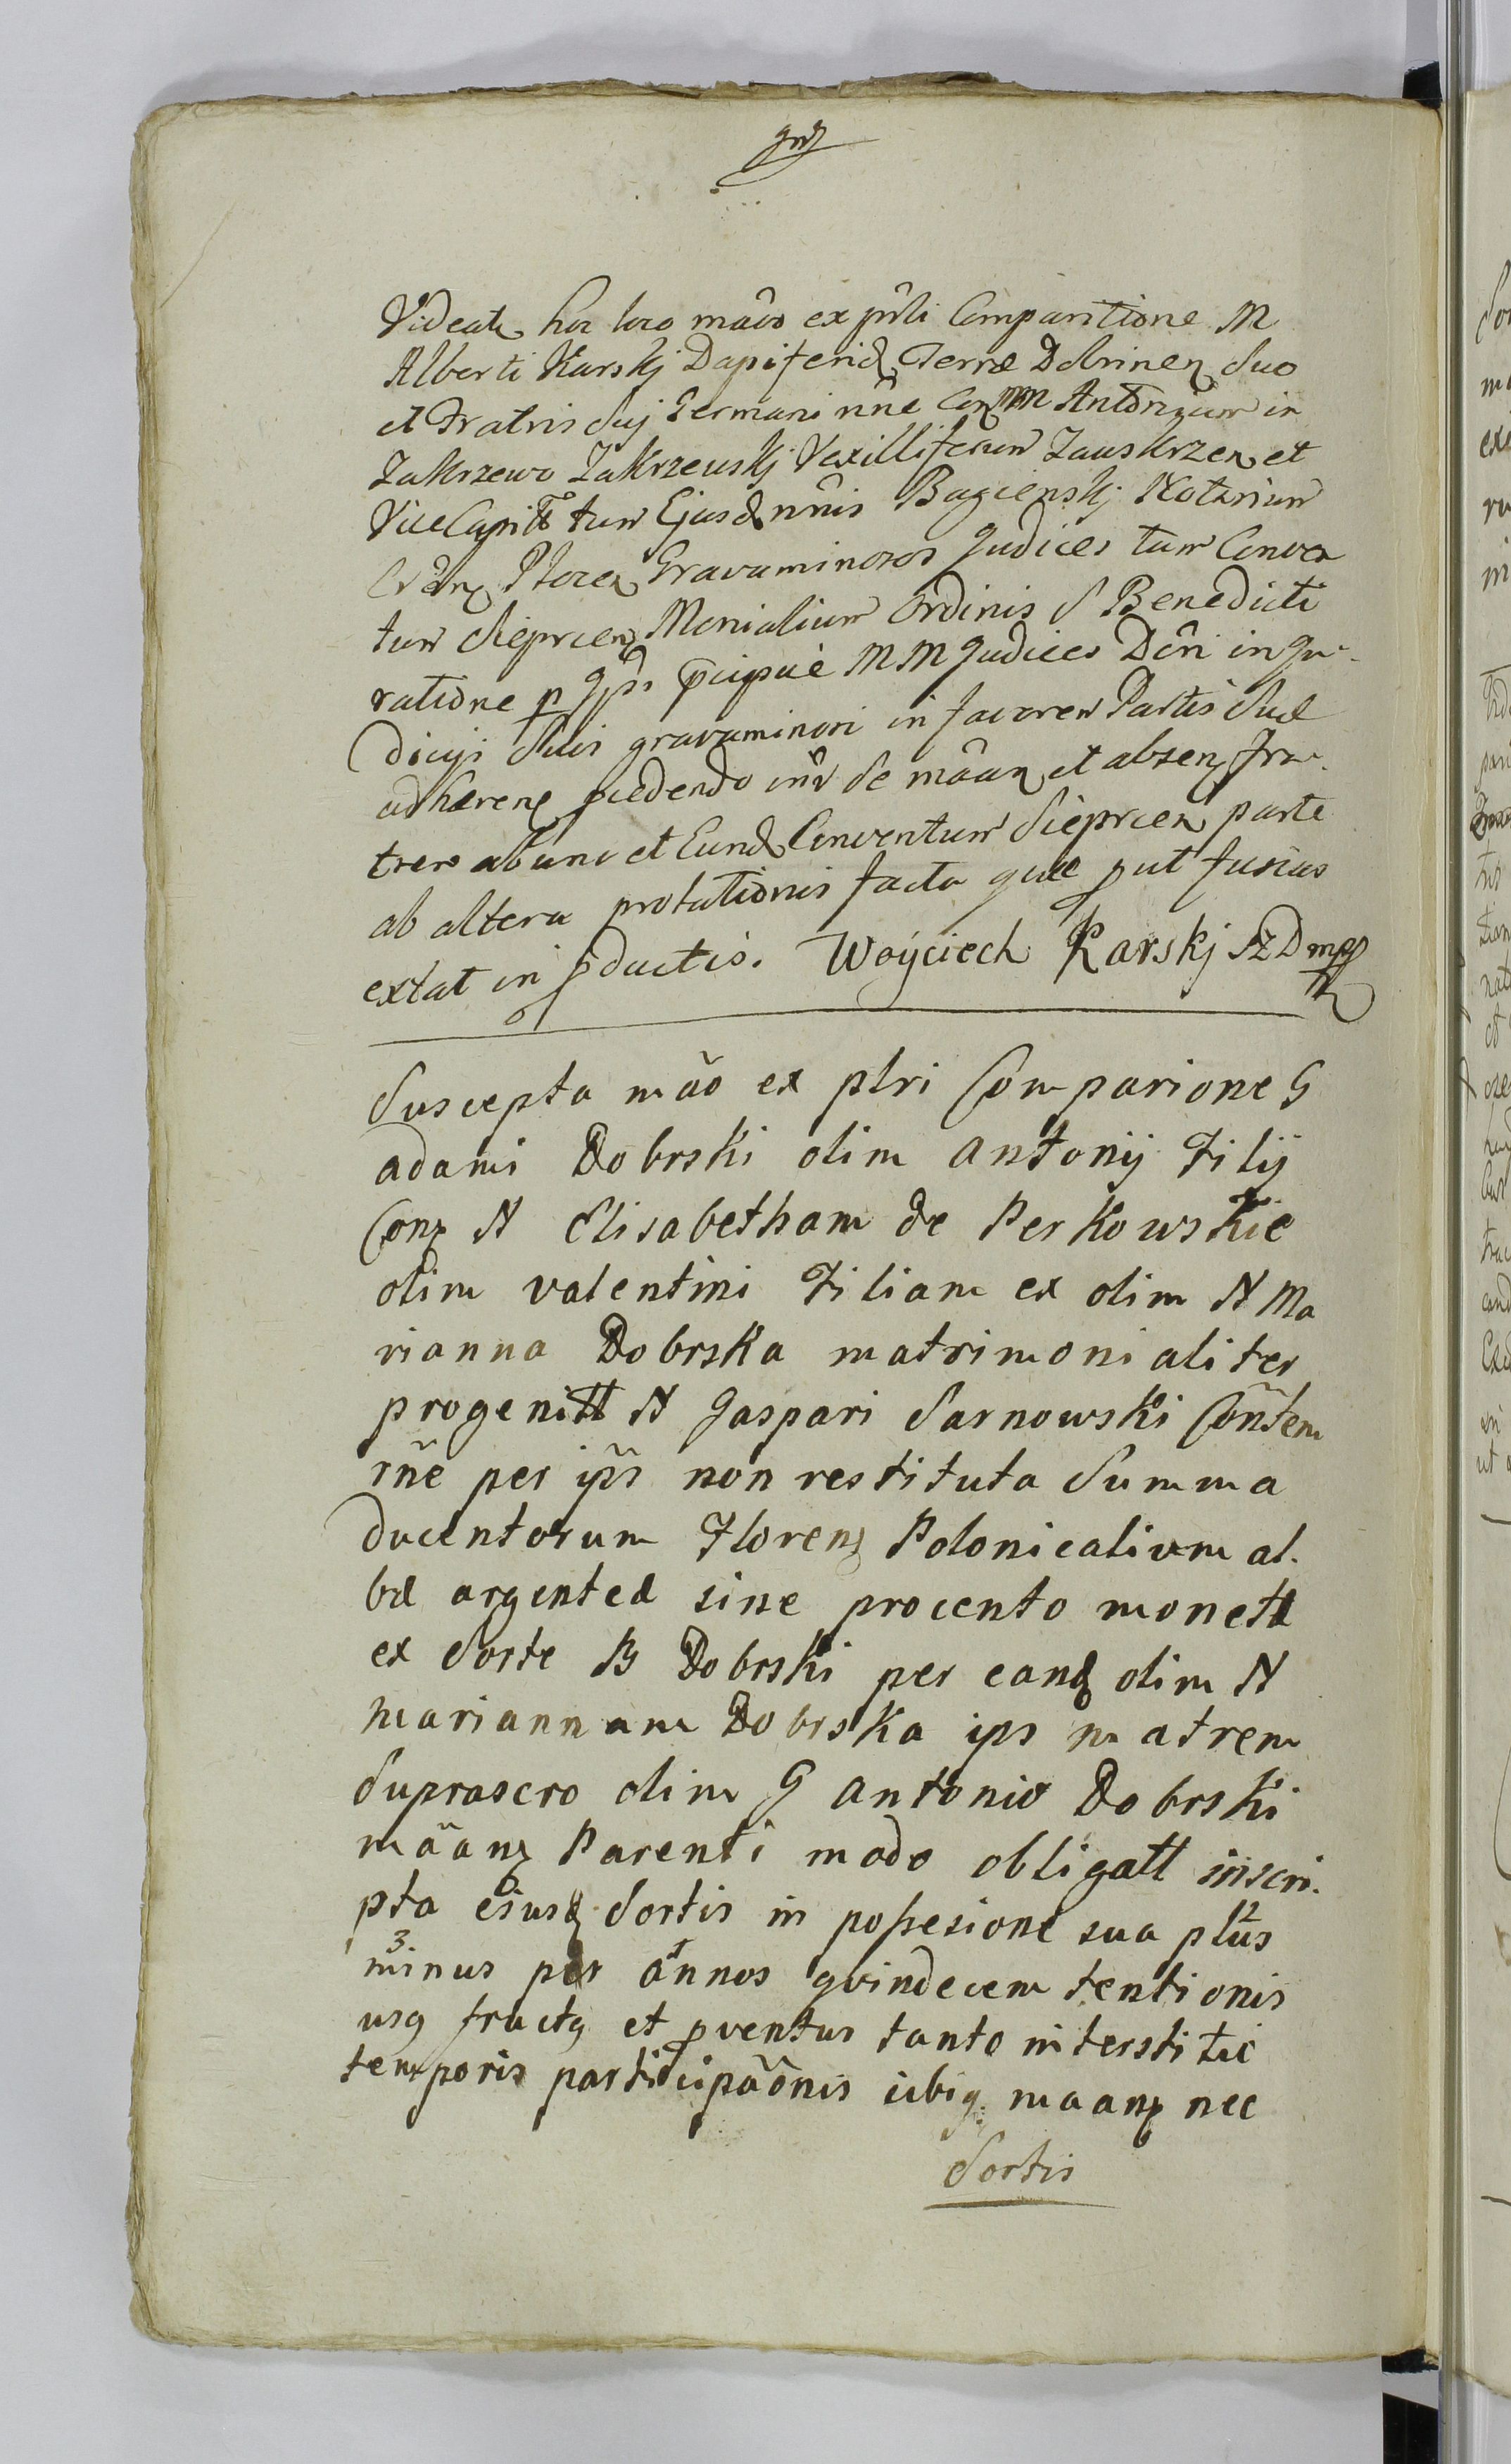 Videatr hoc loco mãao ex pñli Comparitione M
Alberti Karskj Dapiferid Terræ Dobrinen suo
et Fratris suj Germani nñe Con MM Antonium in
Zakrzewo Zakrzewskj Vexilliferum Zauskrzen et
ViceCapitt tum Ejusd nñis Bagienskj Notarium
Ploces Gravaminosos Judices tum Conven
tum Sieprcen Monialium Ordinis S Benedicti
ratione p Jps pcipuè MM Judices Dñi in Ju-
dicijs Suis gravaminosi in favorem Partis Suæ
adhæren pcedendo int se mãan et absen fra-
trem ab una et Eund Conventum Sieprcen parte
ab altera protationis facta quæ put fusius
extat in pductis. Woyciech Karskj SZD mpp
Suscepta mão ex plri Comparione G
adami Dobrski olim Antonij Filij
Con N Elisabetham de Perkowskie
olim valentini Filiam ex olim N Ma
rianna Dobrska matrimonialiter
progenitt N Gaspari Sarnowski Cõntem
rñe per ip̃s non restituta Summa
ducentorum Floren Polonicalium al-
bæ argenteæ sine procento monetæ
ex Sorte B Dobrski per eand olim N
mariannam Dobrska ips matrem
Suprascro olim G antonio Dobrski
mãan Parenti modo obligatt inscri-
pta eiusd Sortis in poßesione sua 2 plus
3 minus per 1 annos quindecem tentionis
usq fructq et pventus tanto interstitie
temporis participãonis ubiq maan nec
Sortis